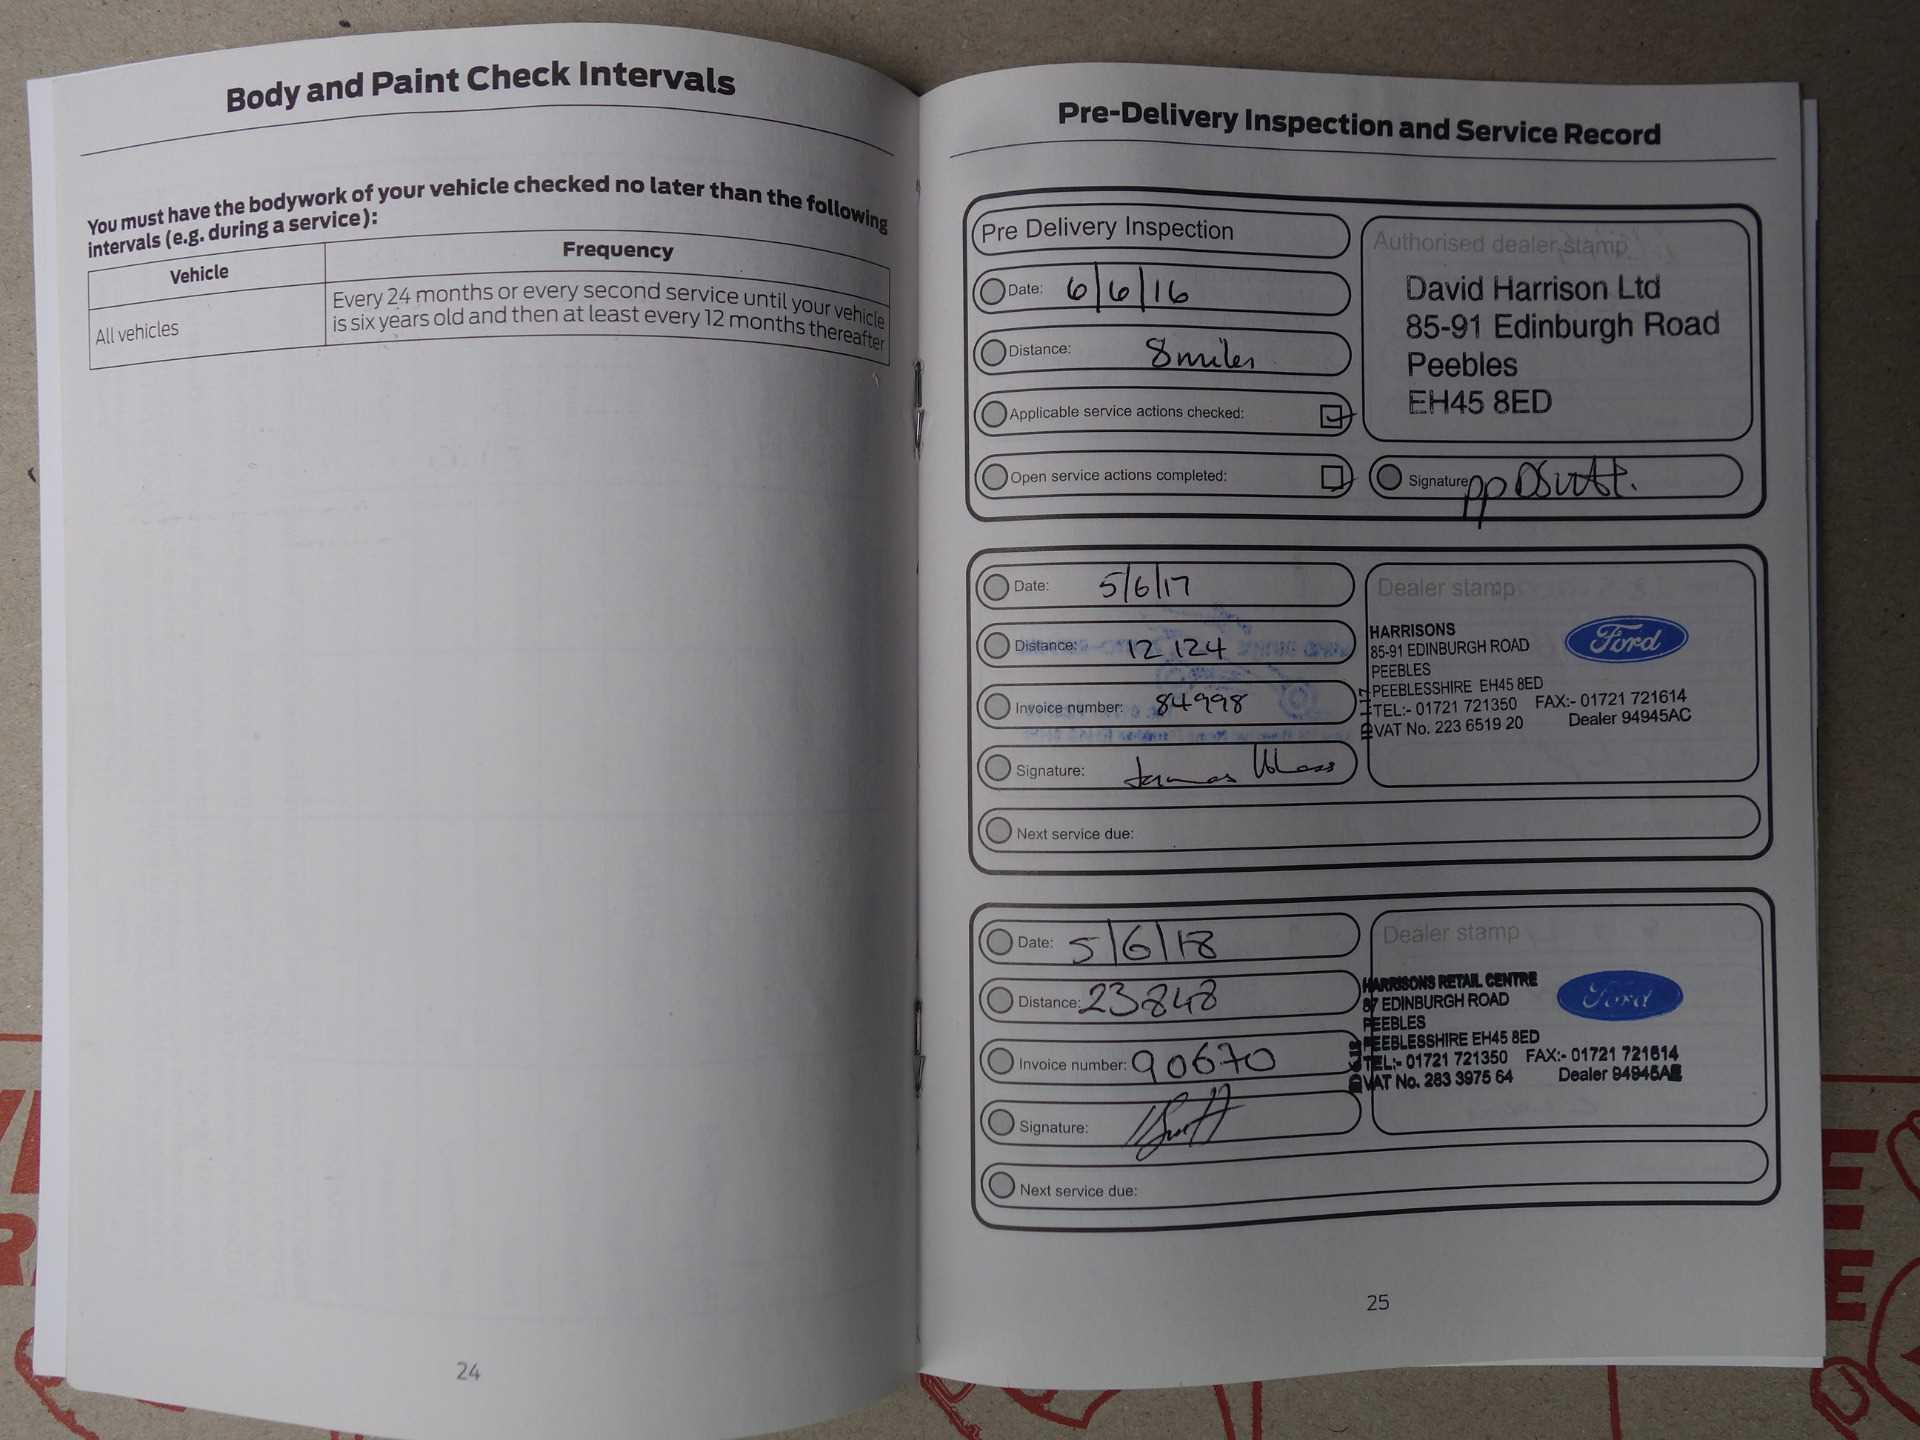 Body and Paint Check Intervals
You must have the bodywork of your vehicle checked no later than the following
intervals (e.g. during a service):
Vehicle
Frequency
All vehicles
Every 24 months or every second service until your vehicle
is six years old and then at least every 12 months thereafter
24
Pre-Delivery Inspection and Service Record
Pre Delivery Inspection
Date: 6/6/16
Distance: 8 miles
Applicable service actions checked:
Open service actions completed:
Authorised dealer stamp
David Harrison Ltd
85-91 Edinburgh Road
Peebles
EH45 8ED
Signature pp
Date: 5/6/17
Distance: 12 124
Invoice number: 84998
Signature:
Next service due:
Dealer stamp
HARRISONS
85-91 EDINBURGH ROAD
PEEBLES
PEEBLESSHIRE EH45 8ED
TEL:- 01721 721350 FAX:- 01721 721614
VAT No. 223 6519 20 Dealer 94945AC
Ford
Date: 5/6/18
Distance: 23848
Invoice number: 90670
Signature:
Next service due:
Dealer stamp
HARRISONS RETAIL CENTRE
87 EDINBURGH ROAD
PEEBLES
PEEBLESSHIRE EH45 8ED
TEL:- 01721 721350 FAX:- 01721 721614
VAT No. 283 3975 64 Dealer
Ford
25